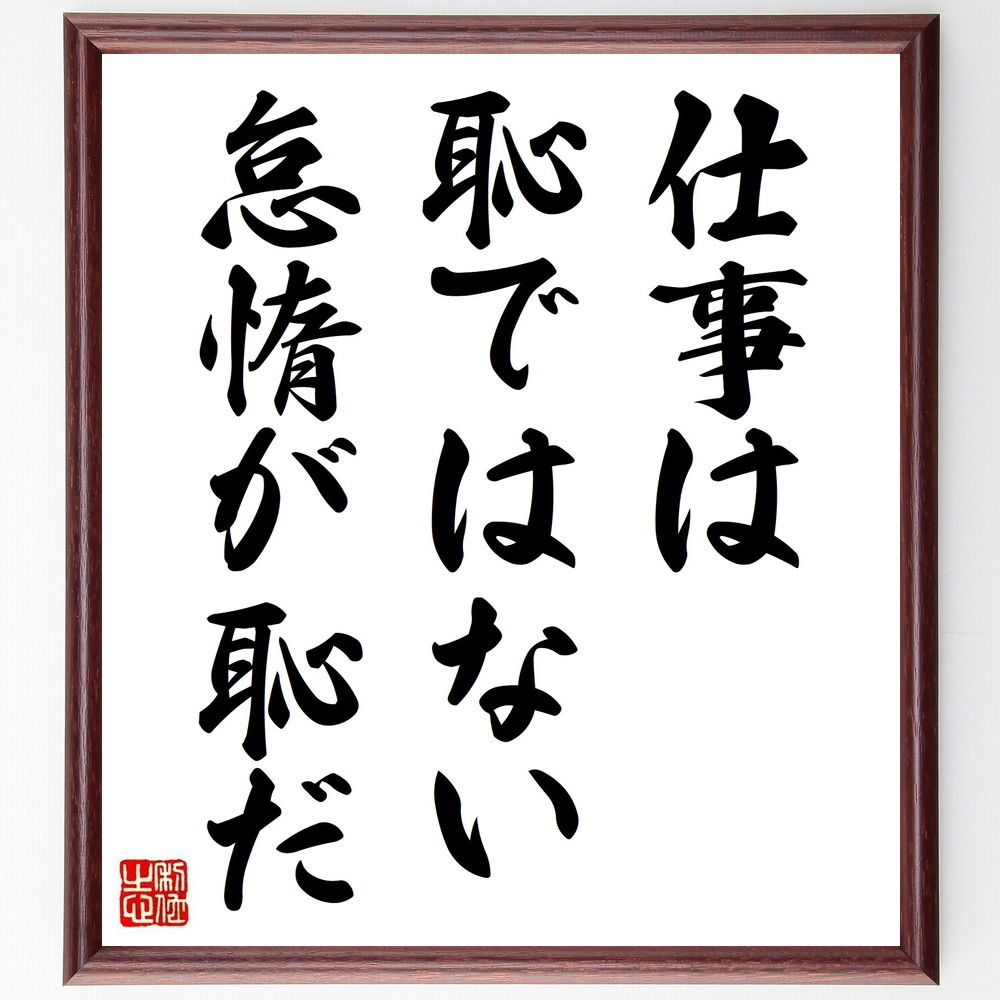 仕事は
恥ではない
怠惰が恥だ